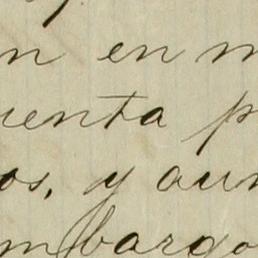 n en m
uenta p
os, y aun
mbargo